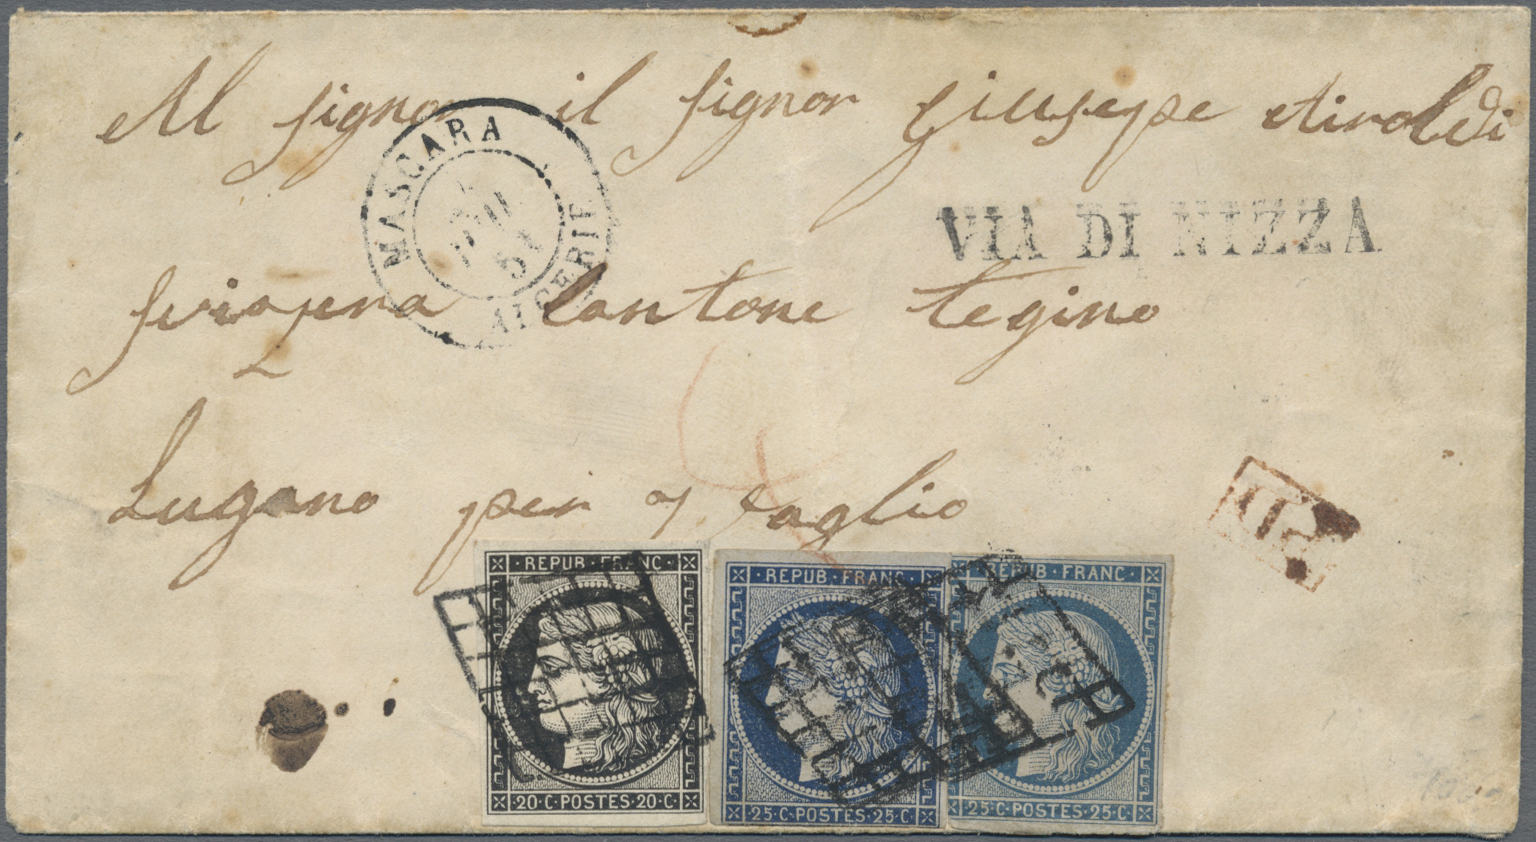 Al signor il signor Giuseppe Airoldi
MASCARA
51
ALGERIE
VIA DI NIZZA
Cantone tegino
Lugano per taglio
P.D.
REPUB·FRANC·
20·C·POSTES·20·C·
REPUB·FRANC·
25·C·POSTES·25·C·
REPUB·FRANC·
25·C·POSTES·25·C·